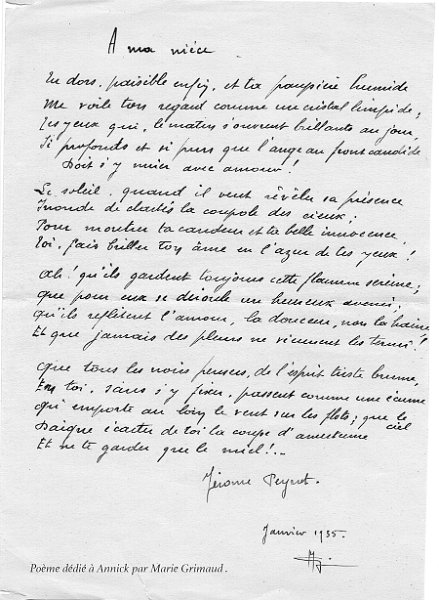 A ma nièce
Tu dors, paisible enfin, et ta paupière humide
Me voile ton regard comme un cristal limpide ;
Tes yeux qui, le matin s'ouvrent brillants au jour,
Si profonds et si purs que l'ange au front candide
Doit s'y mirer avec amour !
Le soleil, quand il veut révéler sa présence
Inonde de clartés la coupole des cieux ;
Pour montrer ta candeur et ta belle innocence
Toi, fais briller ton âme en l'azur de tes yeux !
Ah ! qu'ils gardent toujours cette flamme sereine ;
Que pour eux se déroule un heureux avenir ;
Qu'ils reflètent l'amour, la douceur, non la haine
Et que jamais des pleurs ne viennent les ternir !
Que tous les noirs pensers, de l'esprit triste brume,
En toi, sans s'y fixer, passent comme une écume
Qu'emporte au loin le vent sur les flots ; que le ciel
Daigne écarter de toi la coupe d'amertume
Et ne te garder que le miel !...
Jérome Peyrot.
Janvier 1935.
Poème dédié à Annick par Marie Grimaud .